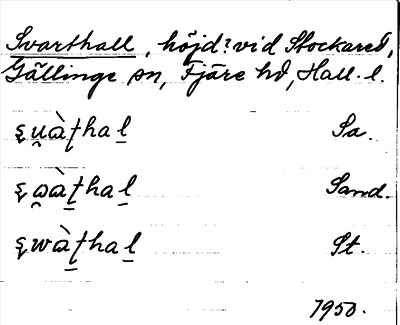 Svarthall, höjd? vid Stockared,
Gällinge sn, Fjäre hd, Hall. l.
ʂu̯àʈhal̠ Sa.
ʂɷ̯àʈ̠hal̠ Sand.
ʂwà̠ʈhal̠ St.
1950.